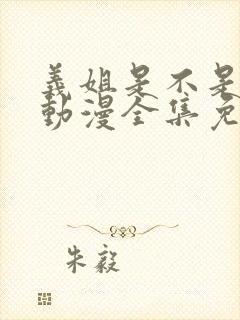 義姐是不是
動漫全集免
朱毅